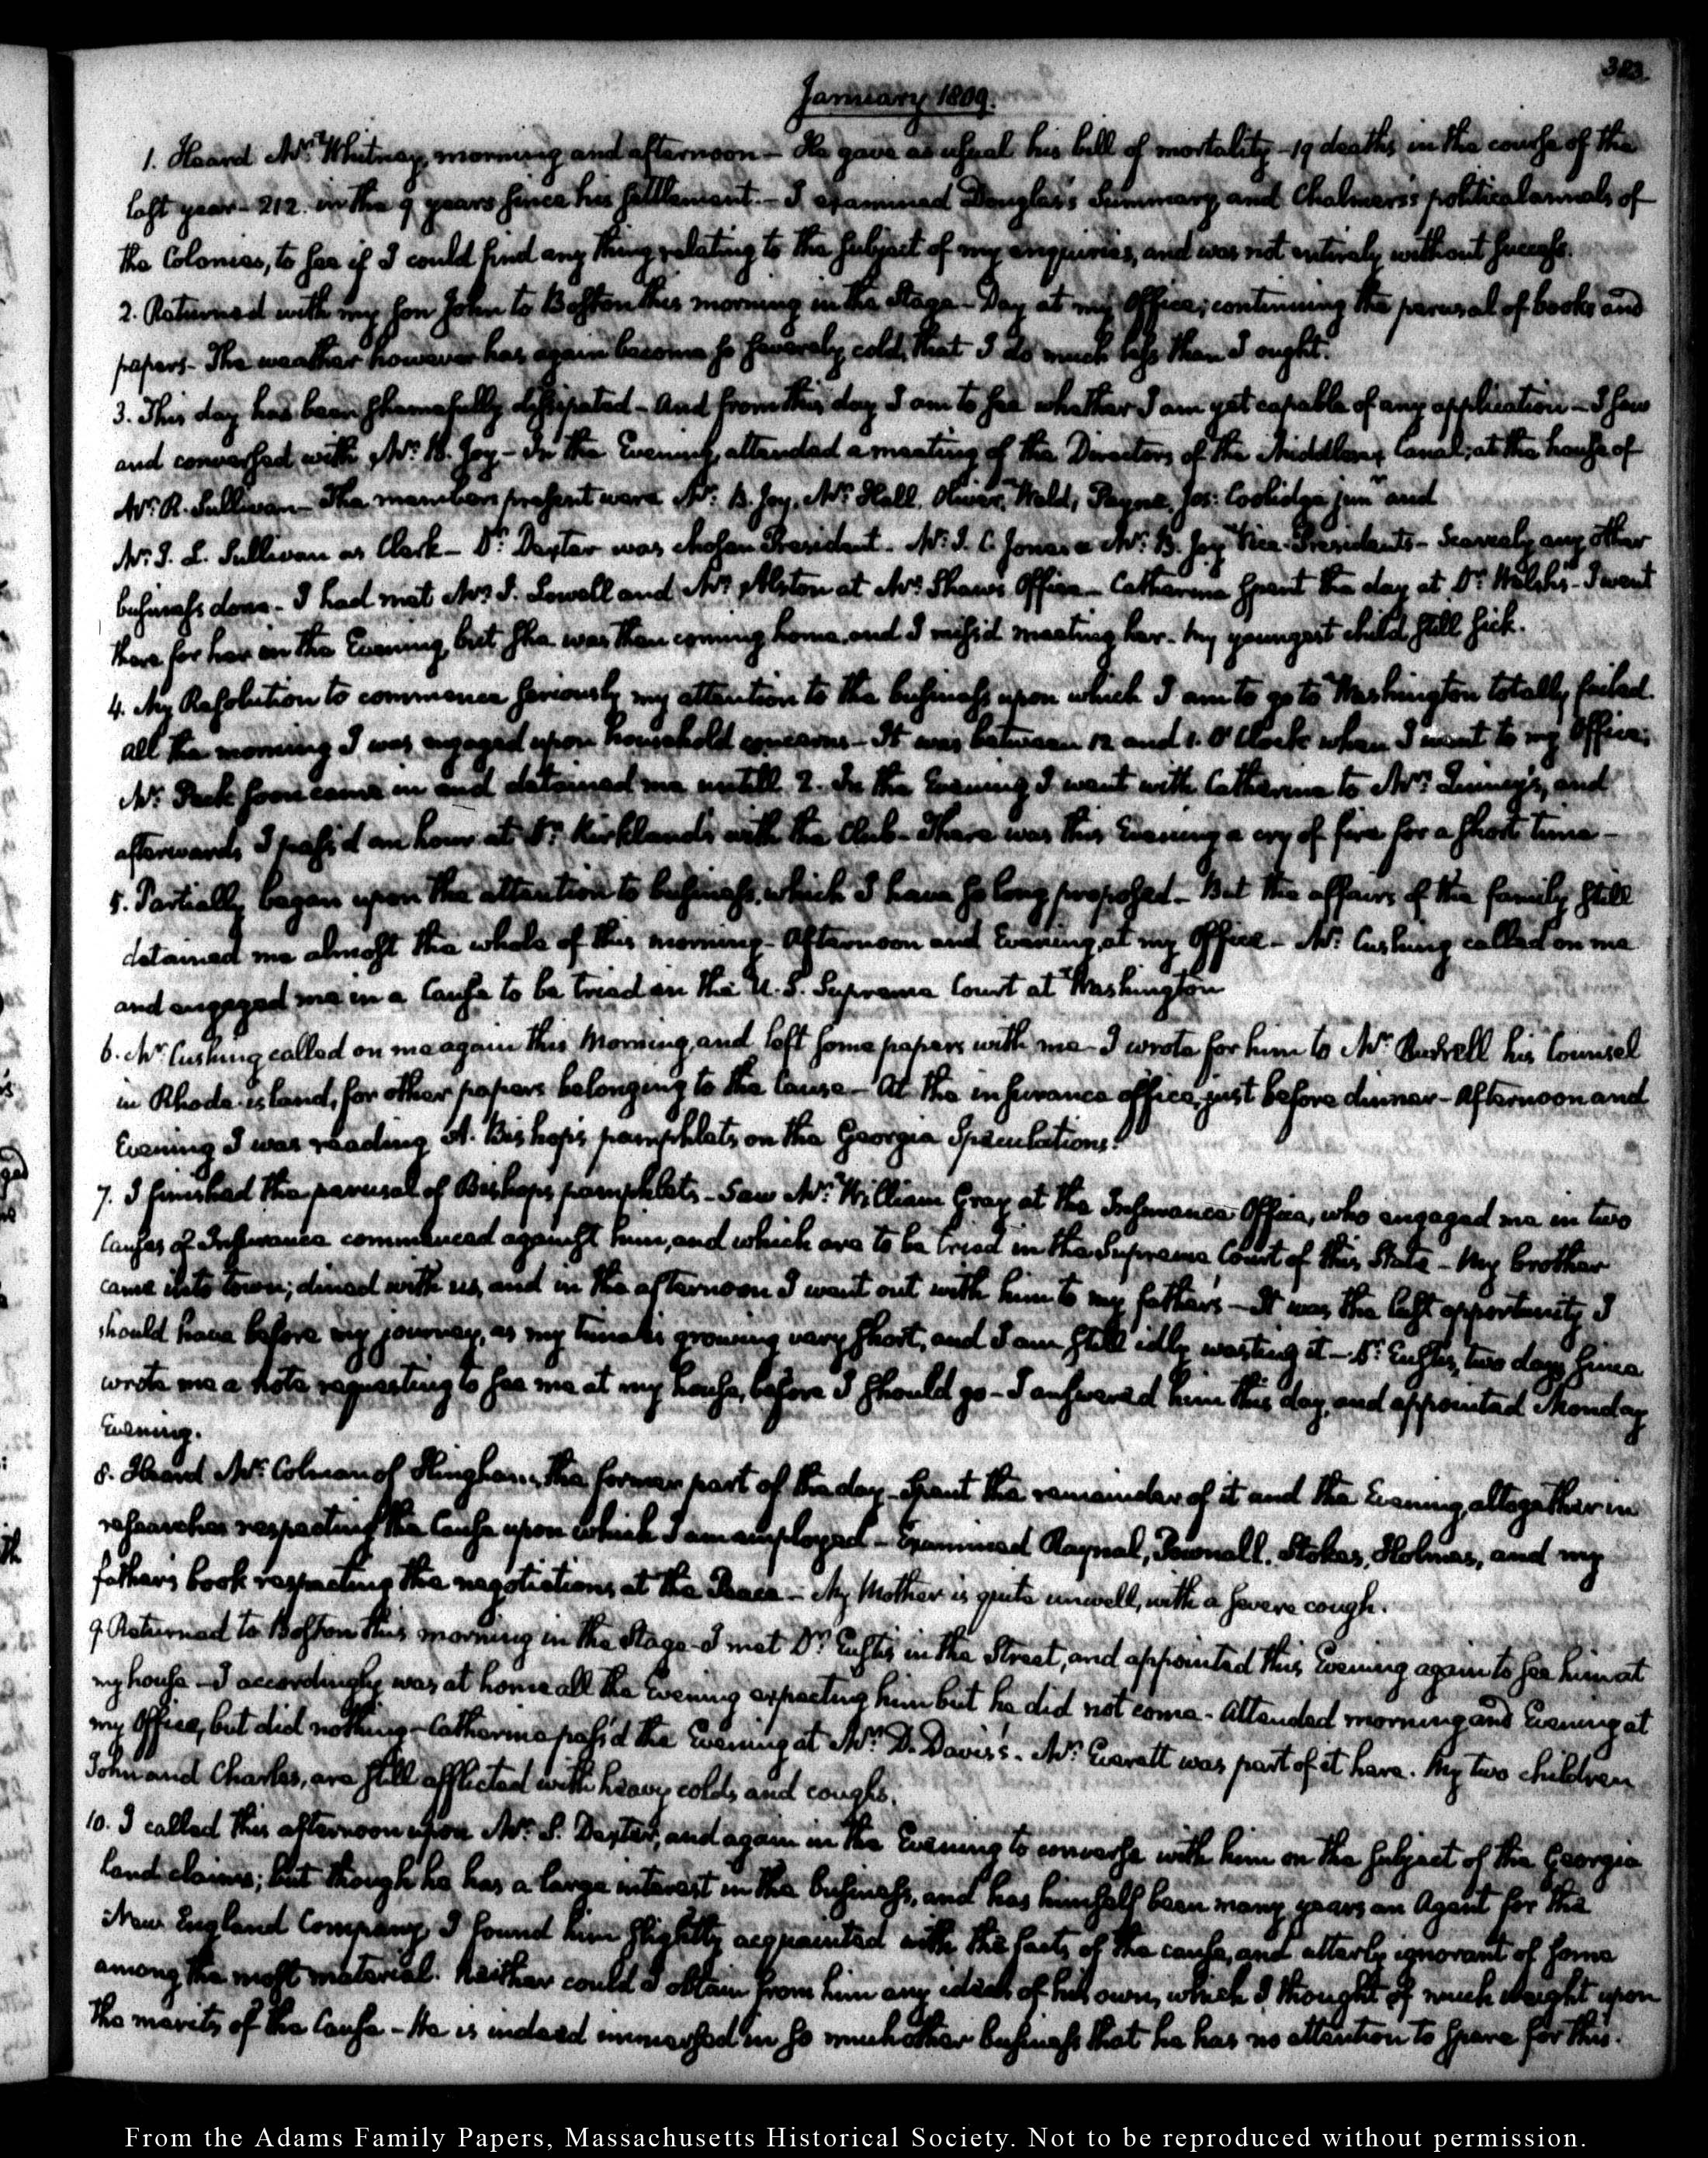 383.
January 1809.
1. Heard Mr. Whitney, morning and afternoon - He gave as usual his bill of mortality - 19 deaths in the course of the
last year - 212. in the 9 years since his settlement. - I examined Douglas's Summary, and Chalmers's political annals of
the Colonies, to see if I could find any thing relating to the subject of my enquiries, and was not entirely without success.
2. Returned with my Son John to Boston this morning in the Stage - Day at my Office; continuing the perusal of books and
papers - The weather however has again become so severely cold, that I do much less than I ought.
3. This day has been shamefully dissipated - And from this day I am to see whether I am yet capable of any application - I saw
and conversed with Mr. B. Joy - In the Evening, attended a meeting of the Directors of the Middlesex Canal; at the house of
Mr. R. Sullivan - The members present were Mr. B. Joy, Mr. Hall, Oliver, Weld, Payne, Jos: Coolidge junr. and
Mr. J. L. Sullivan as Clerk - Dr. Dexter was chosen President. Mr. J. C. Jones & Mr. B. Joy Vice-Presidents - Scarcely any other
business done - I had met Mr. J. Lowell and Mr. Alston at Mr. Shaw's Office - Catherine spent the day at Dr. Welsh's - I went
there for her in the Evening, but she was then coming home, and I miss'd meeting her - My youngest child still sick.
4. My Resolution to commence seriously my attention to the business upon which I am to go to Washington totally failed.
All the morning I was engaged upon household concerns - It was between 12 and 1. O'Clock when I went to my Office;
Mr. Peck soon came in and detained me untill 2. In the Evening I went with Catherine to Mr. Quincy's, and
afterwards I pass'd an hour at Dr. Kirkland's with the Club - There was this Evening a cry of fire for a short time -
5. Partially began upon the attention to business, which I have so long proposed - But the affairs of the family still
detained me almost the whole of this morning - Afternoon and Evening, at my Office - Mr. Cushing called on me
and engaged me in a Cause to be tried in the U. S. Supreme Court at Washington
6. Mr. Cushing called on me again this Morning, and left some papers with me - I wrote for him to Mr. Burrell his Counsel
in Rhode island, for other papers belonging to the Cause - At the insurance office, just before dinner - Afternoon and
Evening I was reading A. Bishop's pamphlets on the Georgia Speculations.
7. I finished the perusal of Bishop's pamphlets - Saw Mr. William Gray at the Insurance Office, who engaged me in two
Causes of Insurance commenced against him, and which are to be tried in the Supreme Court of this State - My brother
came into town; dined with us, and in the afternoon I went out with him to my father's - It was the last opportunity I
should have before my journey, as my time is growing very short, and I am still idly wasting it - Dr. Eustis, two days since
wrote me a note requesting to see me at my house, before I should go - I answered him this day, and appointed Monday
Evening.
8. Heard Mr. Colman of Hingham, the former part of the day - Spent the remainder of it and the Evening, altogether in
researches respecting the Cause upon which I am employed - Examined Raynal, Pownall, Stokes, Holmes, and my
father's book respecting the negotiations at the Peace - My Mother is quite unwell, with a severe cough.
9. Returned to Boston this morning in the Stage - I met Dr. Eustis in the Street, and appointed this Evening again to see him at
my house - I accordingly was at home all the Evening expecting him but he did not come - Attended morning and Evening at
my Office, but did nothing - Catherine pass'd the Evening at Mr. D. Davis's. Mr. Everett was part of it here. My two children
John and Charles, are still afflicted with heavy colds and coughs.
10. I called this afternoon upon Mr. S. Dexter, and again in the Evening to converse with him on the subject of the Georgia
land claims; but though he has a large interest in the business, and has himself been many years an Agent for the
New England Company, I found him slightly acquainted with the facts of the cause, and utterly ignorant of some
among the most material. Neither could I obtain from him any ideas of his own, which I thought of much weight upon
the merits of the Cause - He is indeed immersed in so much other business that he has no attention to spare for this.
From the Adams Family Papers, Massachusetts Historical Society. Not to be reproduced without permission.